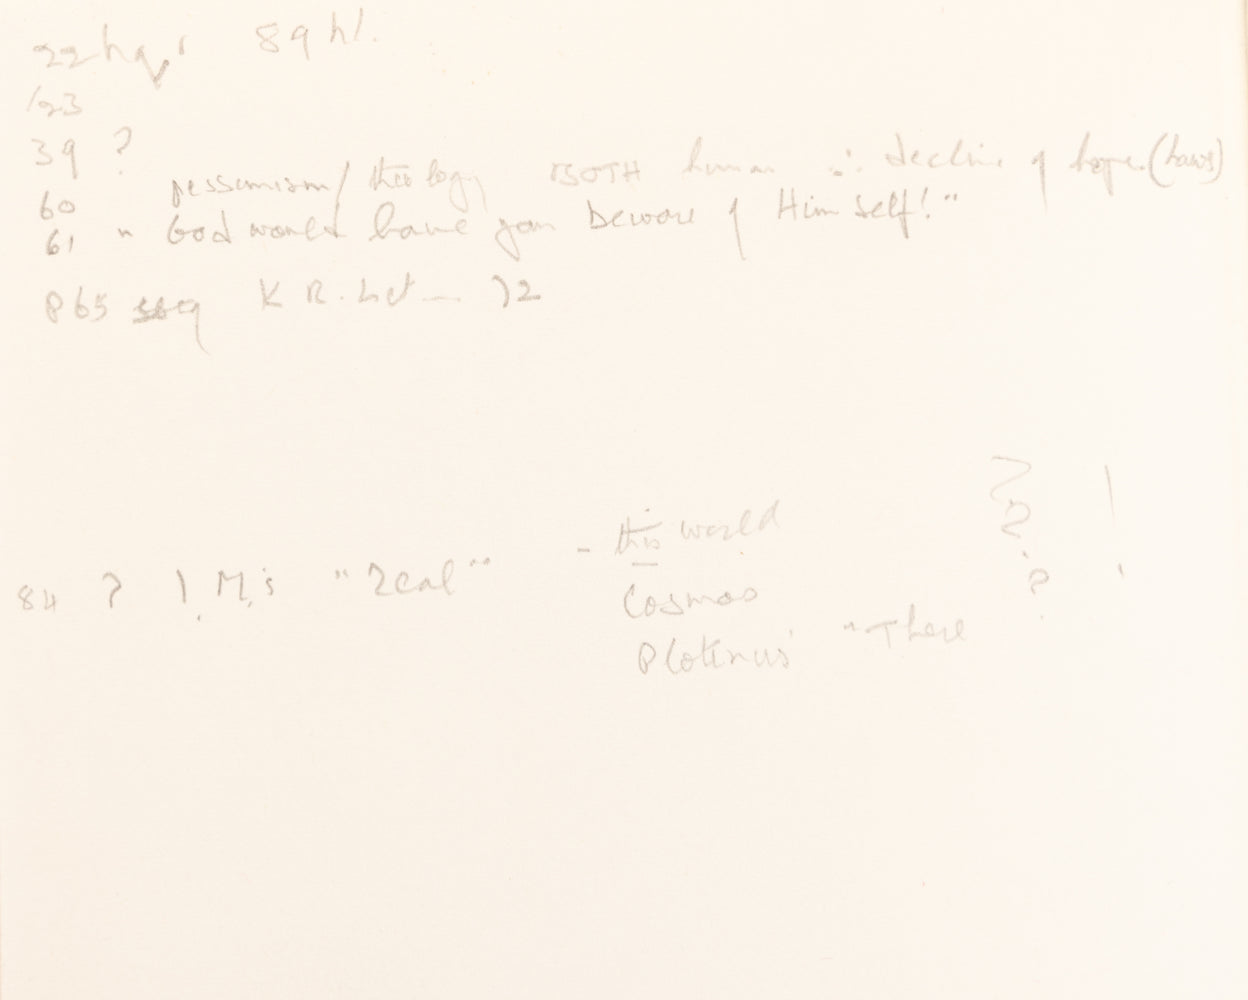 22 89
/23
39 ?
60 pessimism/theology BOTH human ∴ decline of hope.
61 " God would have you beware of Himself!"
P 65 seq K R. 72
? !
- this world ?
84 ? I. M.'s "Real" Cosmos ?
Plotinus' "There